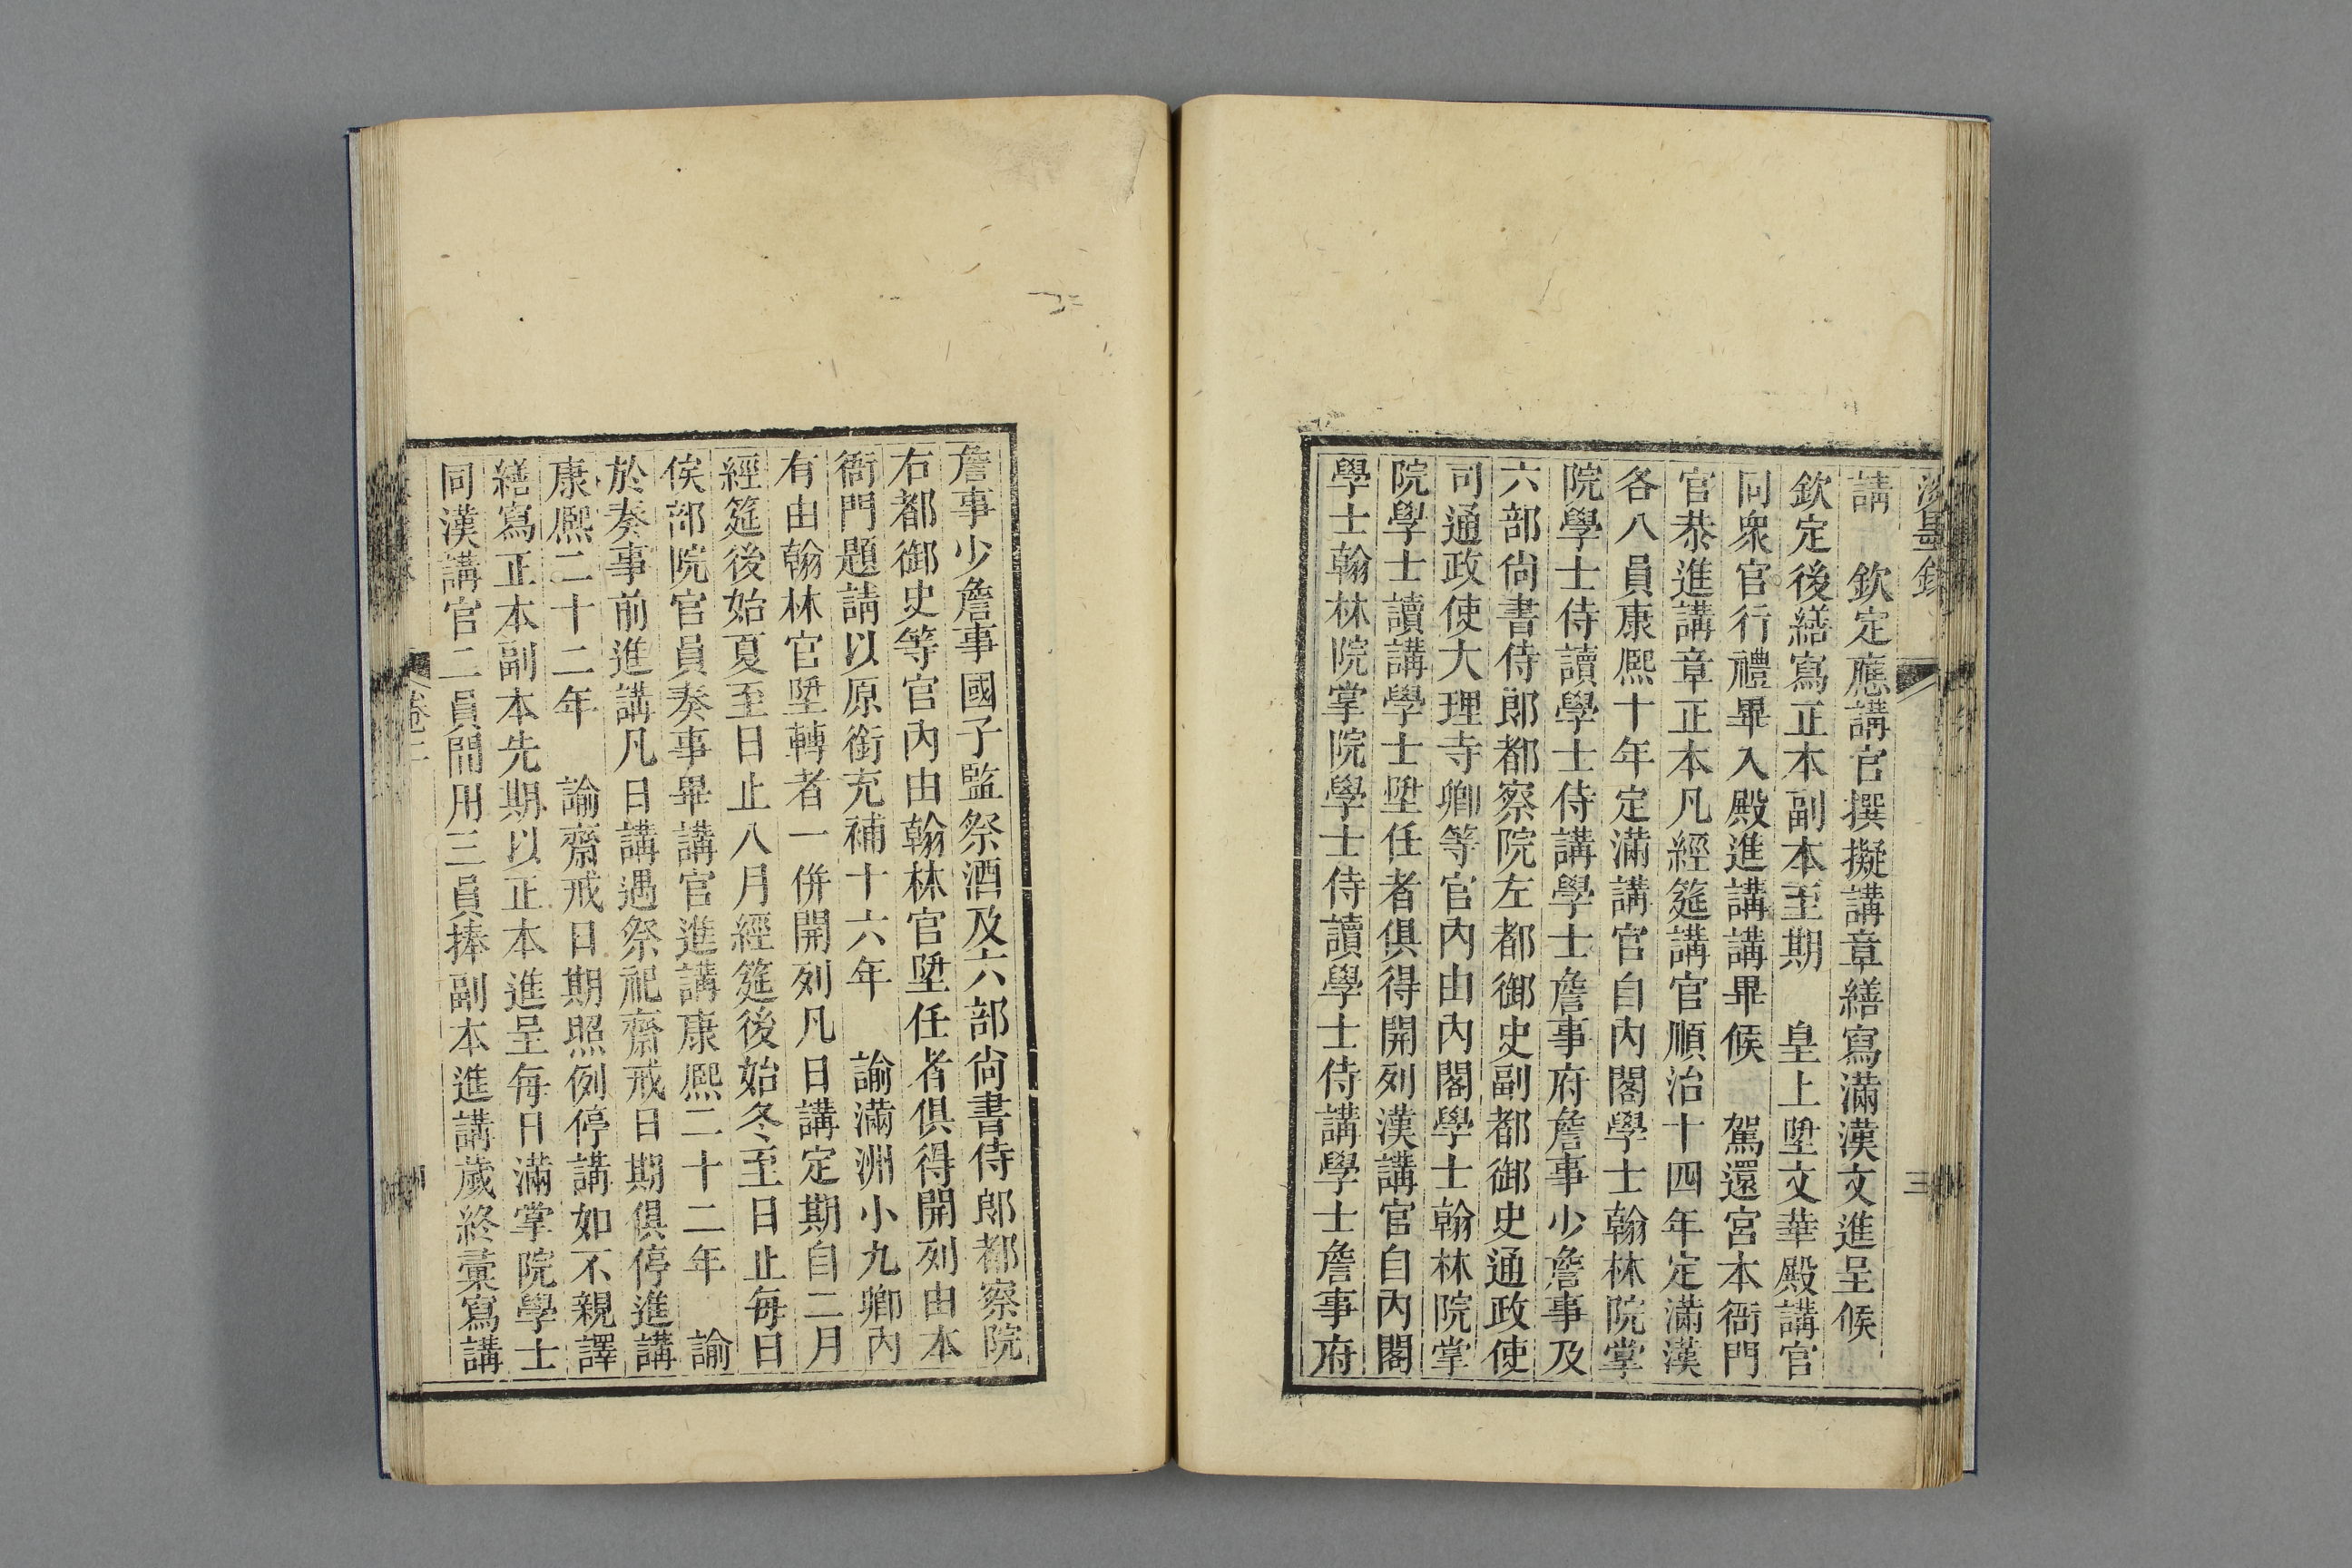 請　欽定應講官撰擬講章繕寫滿漢文進呈候
欽定後繕寫正本副本至期　皇上陞文華殿講官
同衆官行禮畢入殿進講講畢候　駕還宮本衙門
官恭進講章正本凡經筵講官順治十四年定滿漢
各八員康熙十年定滿講官自內閣學士翰林院掌
院學士侍讀學士侍講學士詹事府詹事少詹事及
六部尙書侍郞都察院左都御史副都御史通政使
司通政使大理寺卿等官內由內閣學士翰林院掌
院學士讀講學士陞任者俱得開列漢講官自內閣
學士翰林院掌院學士侍讀學士侍講學士詹事府
三
詹事少詹事國子監祭酒及六部尙書侍郞都察院
右都御史等官內由翰林官陞任者俱得開列由本
衙門題請以原銜充補十六年　諭滿洲小九卿內
有由翰林官陞轉者一併開列凡日講定期自二月
經筵後始夏至日止八月經筵後始冬至日止每日
俟部院官員奏事畢講官進講康熙二十二年　諭
於奏事前進講凡日講遇祭祀齋戒日期俱停進講
康熙二十二年　諭齋戒日期照例停講如不親譯
繕寫正本副本先期以正本進呈每日滿掌院學士
同漢講官二員間用三員捧副本進講歲終彙寫講
卷二